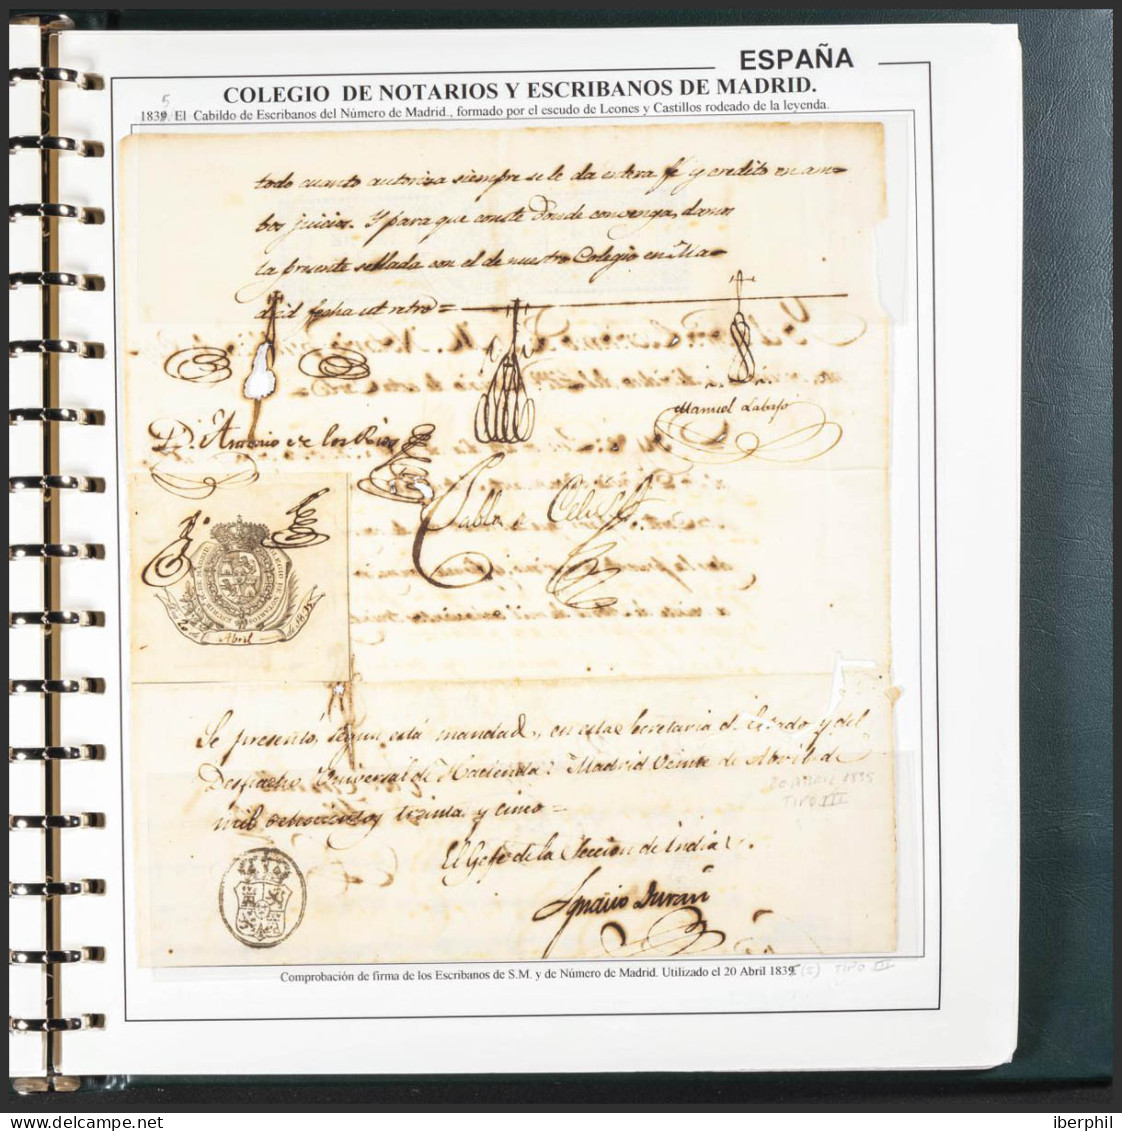 ESPAÑA
COLEGIO DE NOTARIOS Y ESCRIBANOS DE MADRID.
5
1839. El Cabildo de Escribanos del Número de Madrid., formado por el escudo de Leones y Castillos rodeado de la leyenda.
todo cuanto autoriza siempre se le da entera fé y credito en am=
bos juicios. Y para que conste donde convenga, damos
la presente sellada con el de nuestro Colegio en Ma=
drid fecha ut retro=
Manuel Labajo
D. Antonio de los Rios
Pablo de
Abril
de 1835
Se presentó, segun está mandado, en esta Secretaria de Estado y del
Despacho Universal de Hacienda: Madrid Veinte de Abril de
mil ochocientos treinta y cinco=
20 ABRIL 1835
TIPO III
El Gefe de la Seccion de Indias.
Ignacio Durán
Comprobación de firma de los Escribanos de S.M. y de Número de Madrid. Utilizado el 20 Abril 1839.
(5) TIPO III
iberphil